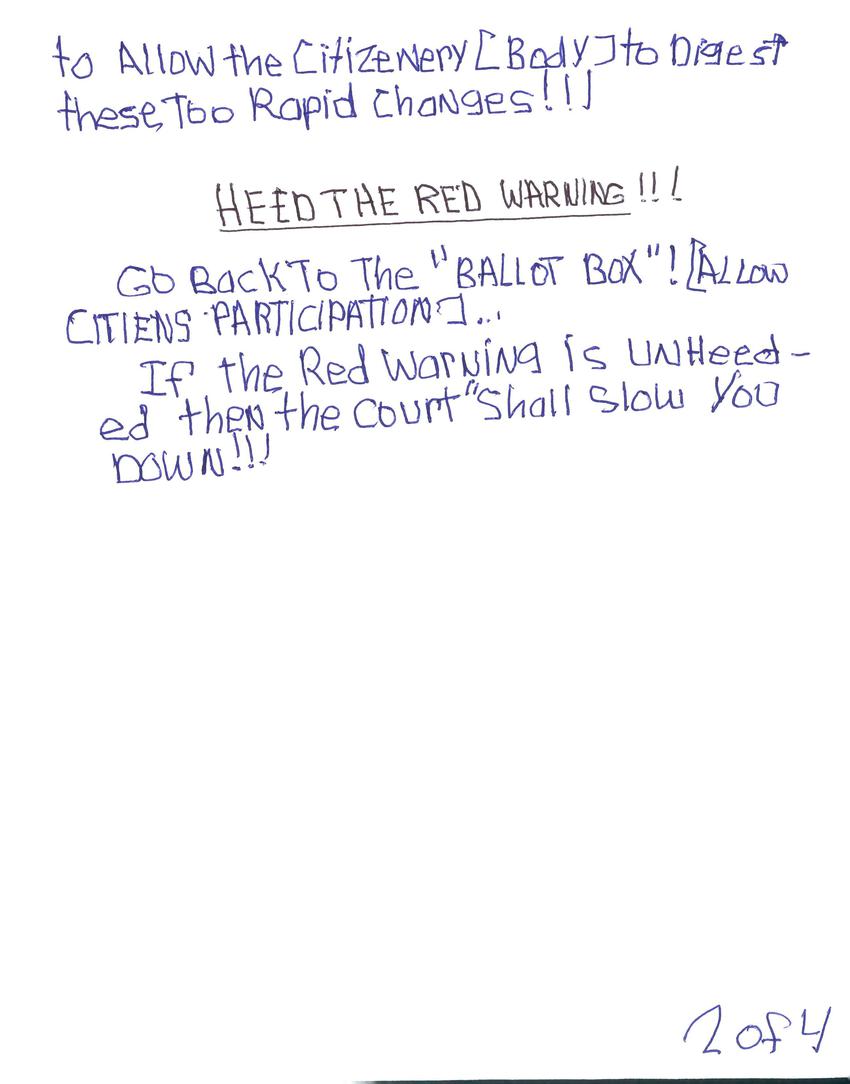 to Allow the Citizenery [Body] to Digest
these, Too Rapid Changes!!!
HEED THE RED WARNING!!!
Go Back To The "BALLOT BOX"! [ALLOW
CITIENS PARTICIPATION]...
If the Red Warning is UNHeed-
ed then the Court "Shall Slow You
DOWN!!!
2 of 4